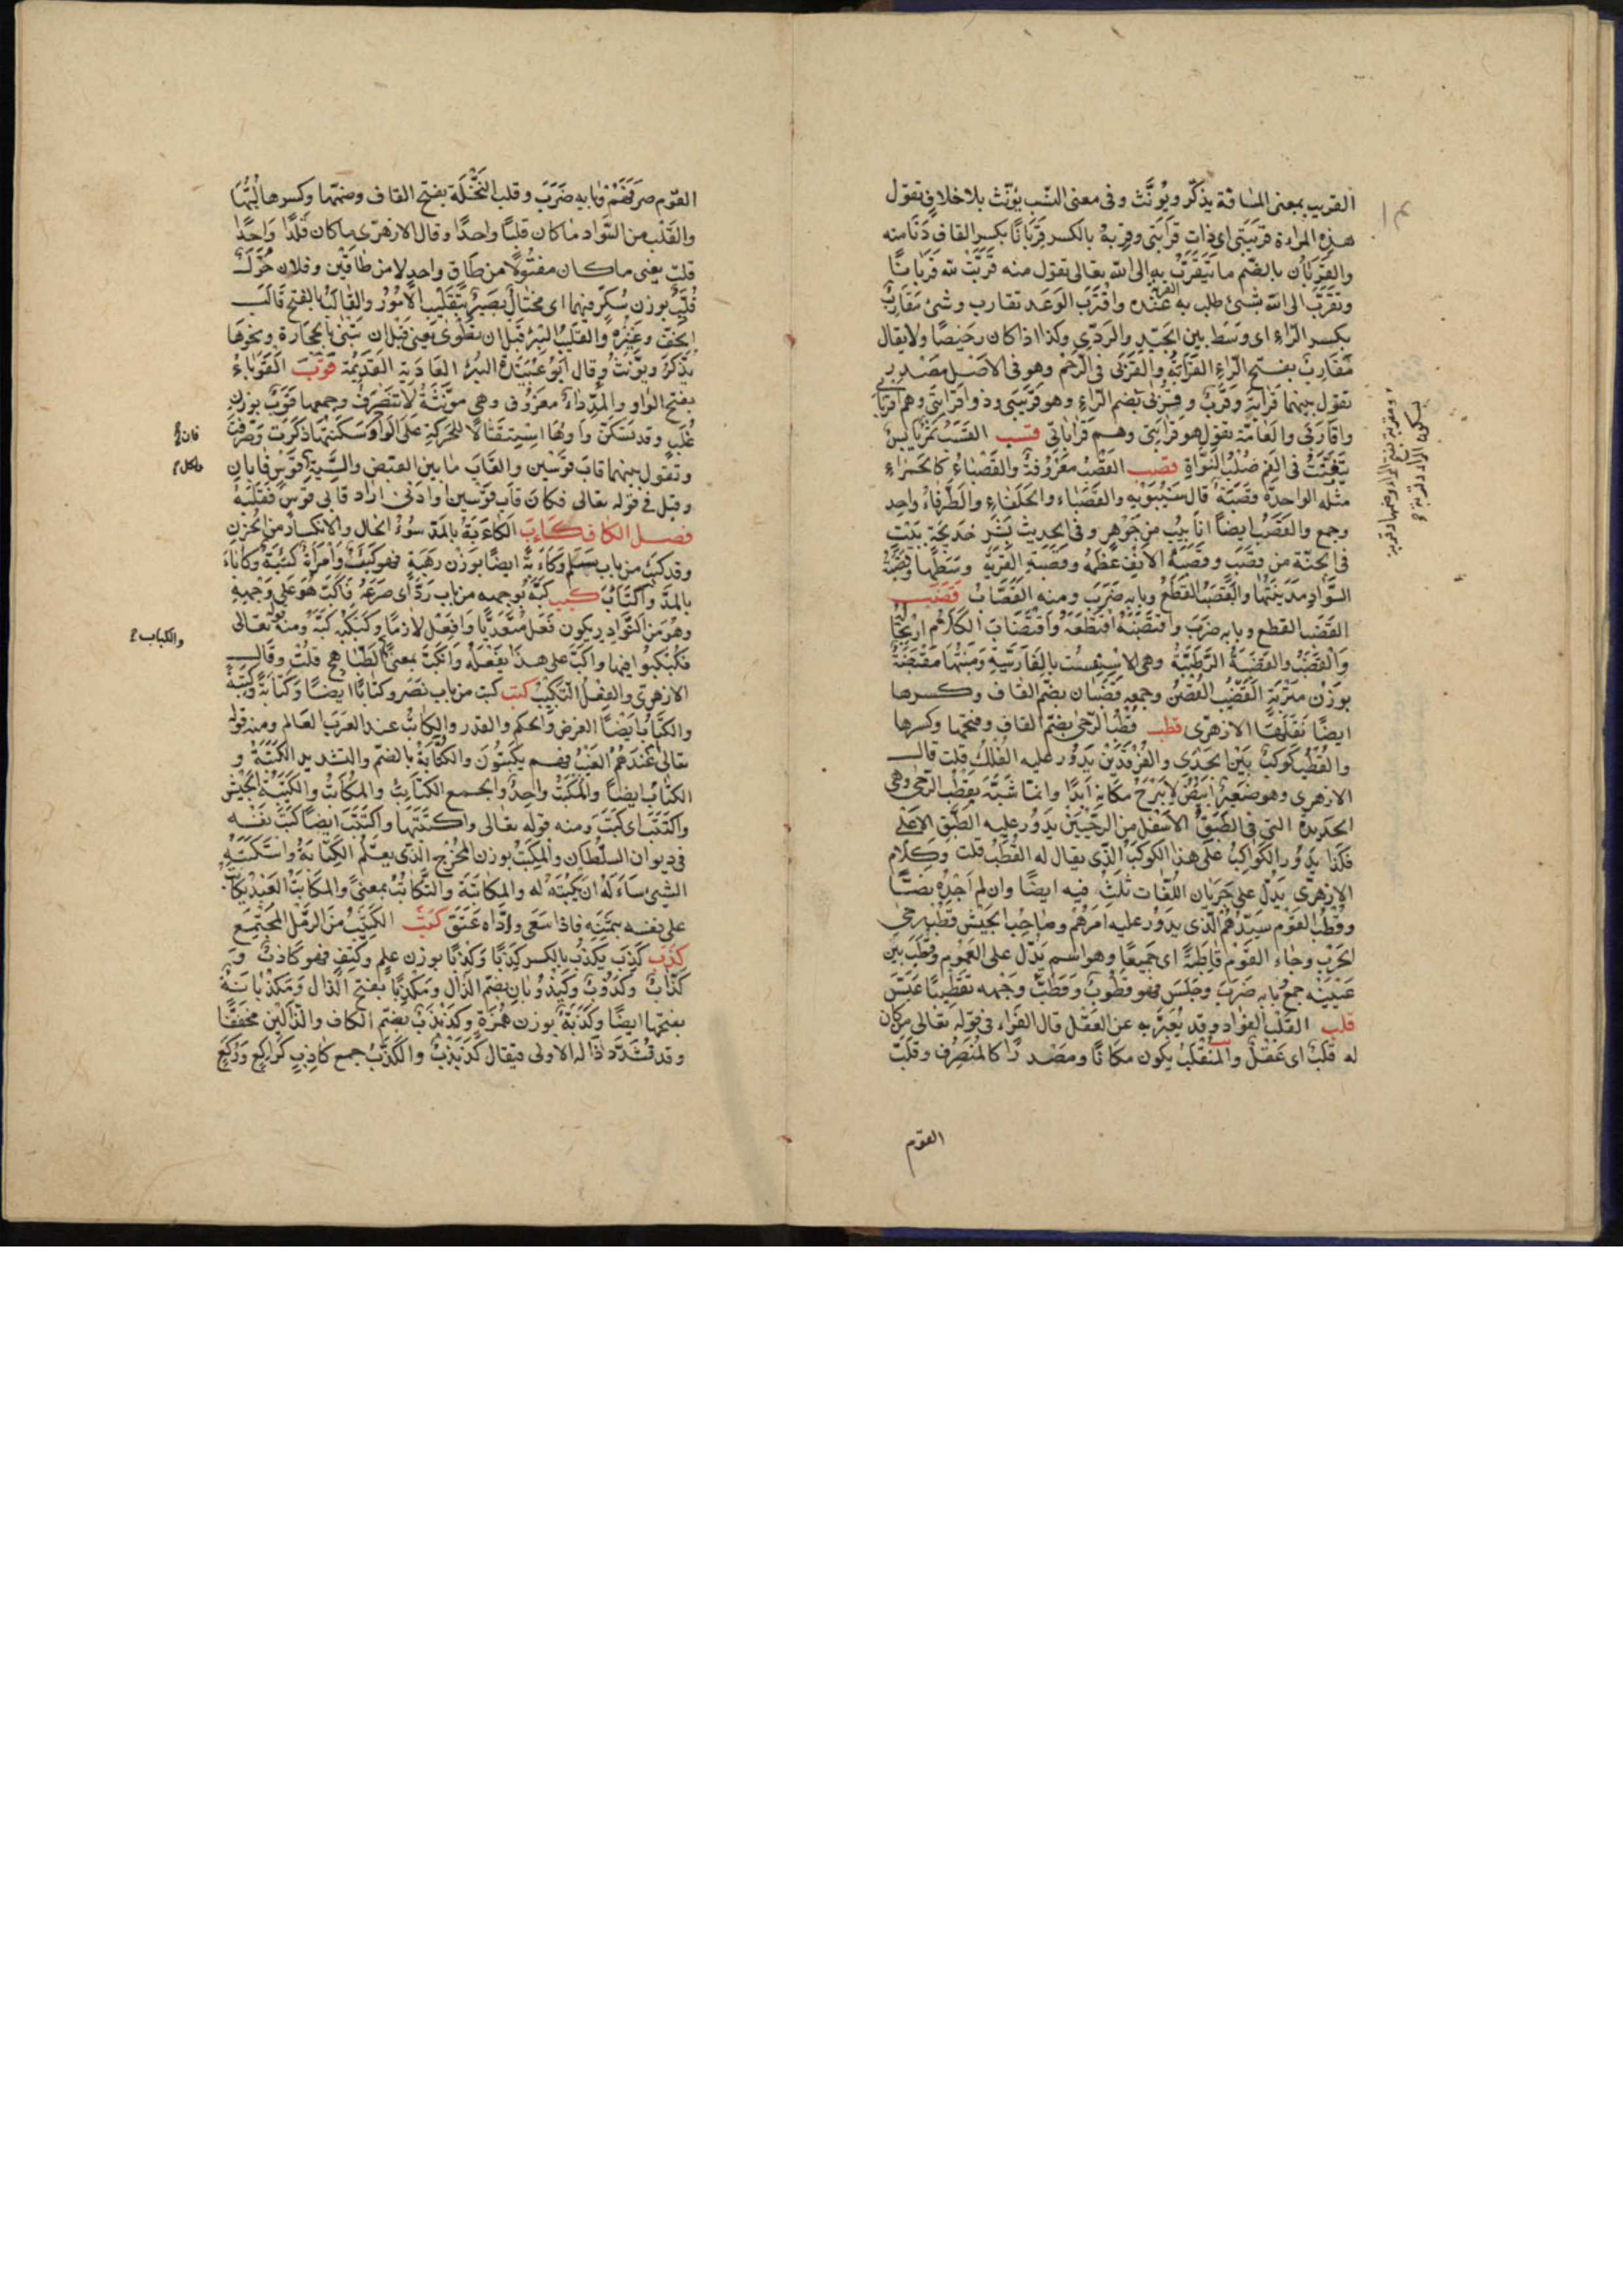 القريب بمعنى المسافة يذكّر ويُؤنَّث وفى معنى النسب يُؤنّث بلا خلاف تقول
هذه المرأة قريبَتى اى ذات قرابَتى وقربهُ بالكسر قِرْبَانًا بكسر القاف دَنَا منه
والقُرْبَان بالضّم ما تَقَرَّبْتَ به الى الله تعالى تقول منه قَرَّبْتُ لله قربانًا
وتقرّب الى الله بشئ طلب به القربة عنده واقْتَرَبَ الوَعْد تقارب وشئ مقارِبٌ
بكسر الرّاء اى وَسَط بين الجَيّد والرَدّى وكذا اذا كان رخيصًا ولا يقال
مُقَارَبٌ بفتح الرّاء القَرَابَةُ والقُرْبَى فى الرّحم وهو فى الاصل مَصْدر
تقول بينهما قَرَابَة وقُرْب وقُرْبَى بضم الرّاء وهو قَرِيبى وذو قَرَابَتى وهم اقربائى
واقَارِبى والعامّة تقول هو قرابَتى وهم قَرَاباتى قسب القَسْبُ تَمْرٌ يَابسٌ
يَتفتّتُ فى الفم صُلْبُ النَّوَاةِ قصب القَصَبُ مَعْرُوفٌ والقَصْبَاءُ كالحَمْرَاءِ
مثله الواحدة قصَبَة قال سيبَوَيْه القَصْبَاء والحَلْفَاءِ والطَّرفاءُ واحد
وجمع والقَصَبُ ايضًا انابيبُ من جَوْهَر وفى الحديث بَشِّرْ خَديجَة بِبَيْتٍ
فى الجنّة من قصَب وقَصَبَةُ الانف عَظْمُهُ وقَصَبَة القَرْيَةِ وسَطُها وقصَبَةُ
السَّوَادِ مَدينَتُهَا والقَصْبُ القَطْعُ وبابه ضَرَبَ ومنه القَصَّابُ قضب
القَضْبُ القطع وبابه ضرَبَ واقْتَضَبْتُهُ اقْتَطَعَهُ واقْتَضَابُ الكَلَامِ ارْتِجَالُهُ
والقَضْبُ والقَضْبَةُ الرَّطْبَةُ وهى الاسْفِست بالفارسّيةِ ومَنْبتُهَا مَقْضَبَةٌ
بوزن متربَة القَضِيب الغُصْنُ وجمعه قُضْبان بضم القاف وكسرها
ايضًا نَقَلَهُمَا الازهرى قطب قُطْبُ الرّحى بضمّ القاف وفتحها وكسرها
والقُطْبُ كَوكَبٌ بَيْنَ الجَدْى والفَرْقَدَيْن يَدُوْر عليه الفَلَكُ قلت قال
الازهرى وهو صَغيرٌ اَبْيَضُ لا يَبْرَحُ مَكَانَه اَبَدًا وانما شُبّهَ بقُطْب الرّحى وهى
الحديدة التى فى الطَّبَق الاسْفل من الرّحيَيْن يَدُوْر عليه الطَّبَق الاعلى
فكذا تَدُوْر الكواكبُ على هذا الكوكب الّذى يقال له القُطْب قلت وكلام
الازهرى يَدُلّ على جَرَيان اللّغات ثلثِ فيه ايضًا وان لم اَجِدْهُ نصًّا
وقُطْبُ القَوْم سَيّدُهُمْ الّذى يَدُوْر عليه اَمْرُهُمْ وصاحبُ الجَيْش قُطْب رَحَى
الحَرْب وجَاء القَوْم قَاطِبَةً اى جَمِيعًا وهو اسم يَدُلّ على العُمُوم وقَطَبَ بين
عَيْنَيْه جَمَع بابه ضرَبَ وجَلَسَ فهو قَطُوبٌ وقَطَّبَ وَجْهه تقطِيبًا عَبَسَ
قلب القَلْب الفؤاد وقد يُعَبَّرُ به عن العَقْل قال الفَراء فى قوله تعالى لمن كان
له قلبٌ اى عَقْلٌ والمُنْقَلَبُ يكون مكانًا ومصدرًا كالمُنْصَرَف وقلبَ
القوم
القوم صرَفَهُمْ وبابه ضَرَبَ وقلب النّخْلَة بفتح القاف وضمّها وكسرها لُبُّهَا
والقُلْب من السّوَار ما كان قلبًا واحدًا وقال الازهرى ما كان قَلْدًا واحدًا
قلت يعنى ما كان مفتُولًا من طاقٍ واحد لا من طاقَيْن وفلان حُوَّلٌ
قُلَّبٌ بوزن سُكَّر فيهما اى مُحْتَالٌ بَصيرٌ بِتَقْلِيب الاُمُوْر والقالَبُ بالفتح قالَبُ
الخفّ وغيره والقَليبُ البئر قَبْل ان تُطْوى يعنى قَبل ان تُبْنى بالحجارة ونحوها
يُذَكَّرَ ويُؤنَّثُ وقال ابُو عُبَيْدَة البئر العَادِية القَديمة قوب القُوَبَاءُ
بفتح الواو والمدّ دَاءٌ مَعْرُوف وهى مُؤنّثَةٌ لا تَنْصَرِفُ وجمعها قُوَبٌ بوزن
عُلَب وقد تُسَكّن واوُهَا اسْتِثْقَالًا للحركة على الواو فان سكنتَهَا ذكّرتَ وصَرَفْتَ
وتقول بينهما قابَ قَوْسَين والقَاب ما بين المقبض والسِّيَة ولكل قَوْسٍ قابان
وقيل فى قوله تعالى فكانَ قابَ قَوْسَين او ادنى اراد قابَى قَوْسٍ فَقَلَبَهُ
فصل الكاف كأب الكَاءبَةُ بالمَدّ سُوءُ الحال والانكسار من الحُزنِ
وقد كئبَ من باب سَلِمَ وكَاْبَةً ايضًا بوَزْن رَهْبَةٍ فهو كَئِيبٌ وامرأة كئيبَةٌ وكأبَاءُ
بالمدّ واكْتَأَبَ كبب كَبَّهُ لوجهه من باب رَدَّ اى صَرَعَهُ فاكَبَّ هُوَ على وَجْهِه
وهو من النّوادر ان يكون فَعَل مُتَعَدّيًا وافْعَل لازمًا وكَبْكَبَهُ كَبَّهُ ومنه قوله تعالى
فكُبْكِبوا فيها واكَبّ على هذا يفعَلُه وانكَبَّ بمعنًى والكباب الطَّباهج قلت وقال
الازهرى والفعْل التّكبيبُ كتب كتب من باب نصَر وكتابًا ايضًا وكتابَةً وكِتْبَةً
والكتابُ ايضًا الفرض والحكم والقدر والكاتبُ عند العَرَب العالم ومنه قوله
تعالى اَمْ عِنْدَهُمُ الغَيْبُ فهم يكتُبُونَ والكُتَّابُ بالضّم والتشديد الكَتَبَةُ و
الكتّابُ ايضًا والمَكْتَبُ واحدٌ والجمع الكَتَاتيبُ والمكاتبُ والكَتِيبَةُ الجَيْش
واكتَتَبَ اى كَتَبَ ومنه قوله تعالى واكتَتَبَهَا واكتَتَبَ ايضًا كتَبَ نفْسه
فى ديوان السلطان والمُكْتِبُ بوزن المُخْرِج الّذى يعلّم الكِتابَةُ واسْتَكْتَبَهُ
الشئ سَأَلَهُ ان يَكْتُبَهُ له والمكاتَبَة والتكاتُبُ بمعنىً والمكاتَبُ العَبْد يكاتِبُ
على نفسه بثَمَنِه فاذا سَعَى وادَّاهُ عَتَق كثب الكَثيبُ مِنَ الرَمْل المُجْتَمِع
كذب كَذَبَ يَكْذِبُ بالكسر كِذْبًا وكَذِبًا بوزن عِلم وكَتِفٍ فهو كاذبٌ و
كذّابٌ وكَذُوبٌ وكَيْذُبانِ بضمّ الذّال ومَكْذَبَانٌ بفتح الذال ومَكْذَبانَةٌ
بفتحها ايضًا وكُذَبَةٌ بوزن هُمَزَةٍ وكُذُبْذُبٌ بضمّ الكاف والذّالَيْن مُخفَّفًا
وقد تُشَدَّد ذَالُه الاولى فيقال كُذُّبْذُبٌ والكُذَّبُ جمع كاذبٍ كراكِعٍ ورُكَّعٍ
فان
ولكل
والكباب